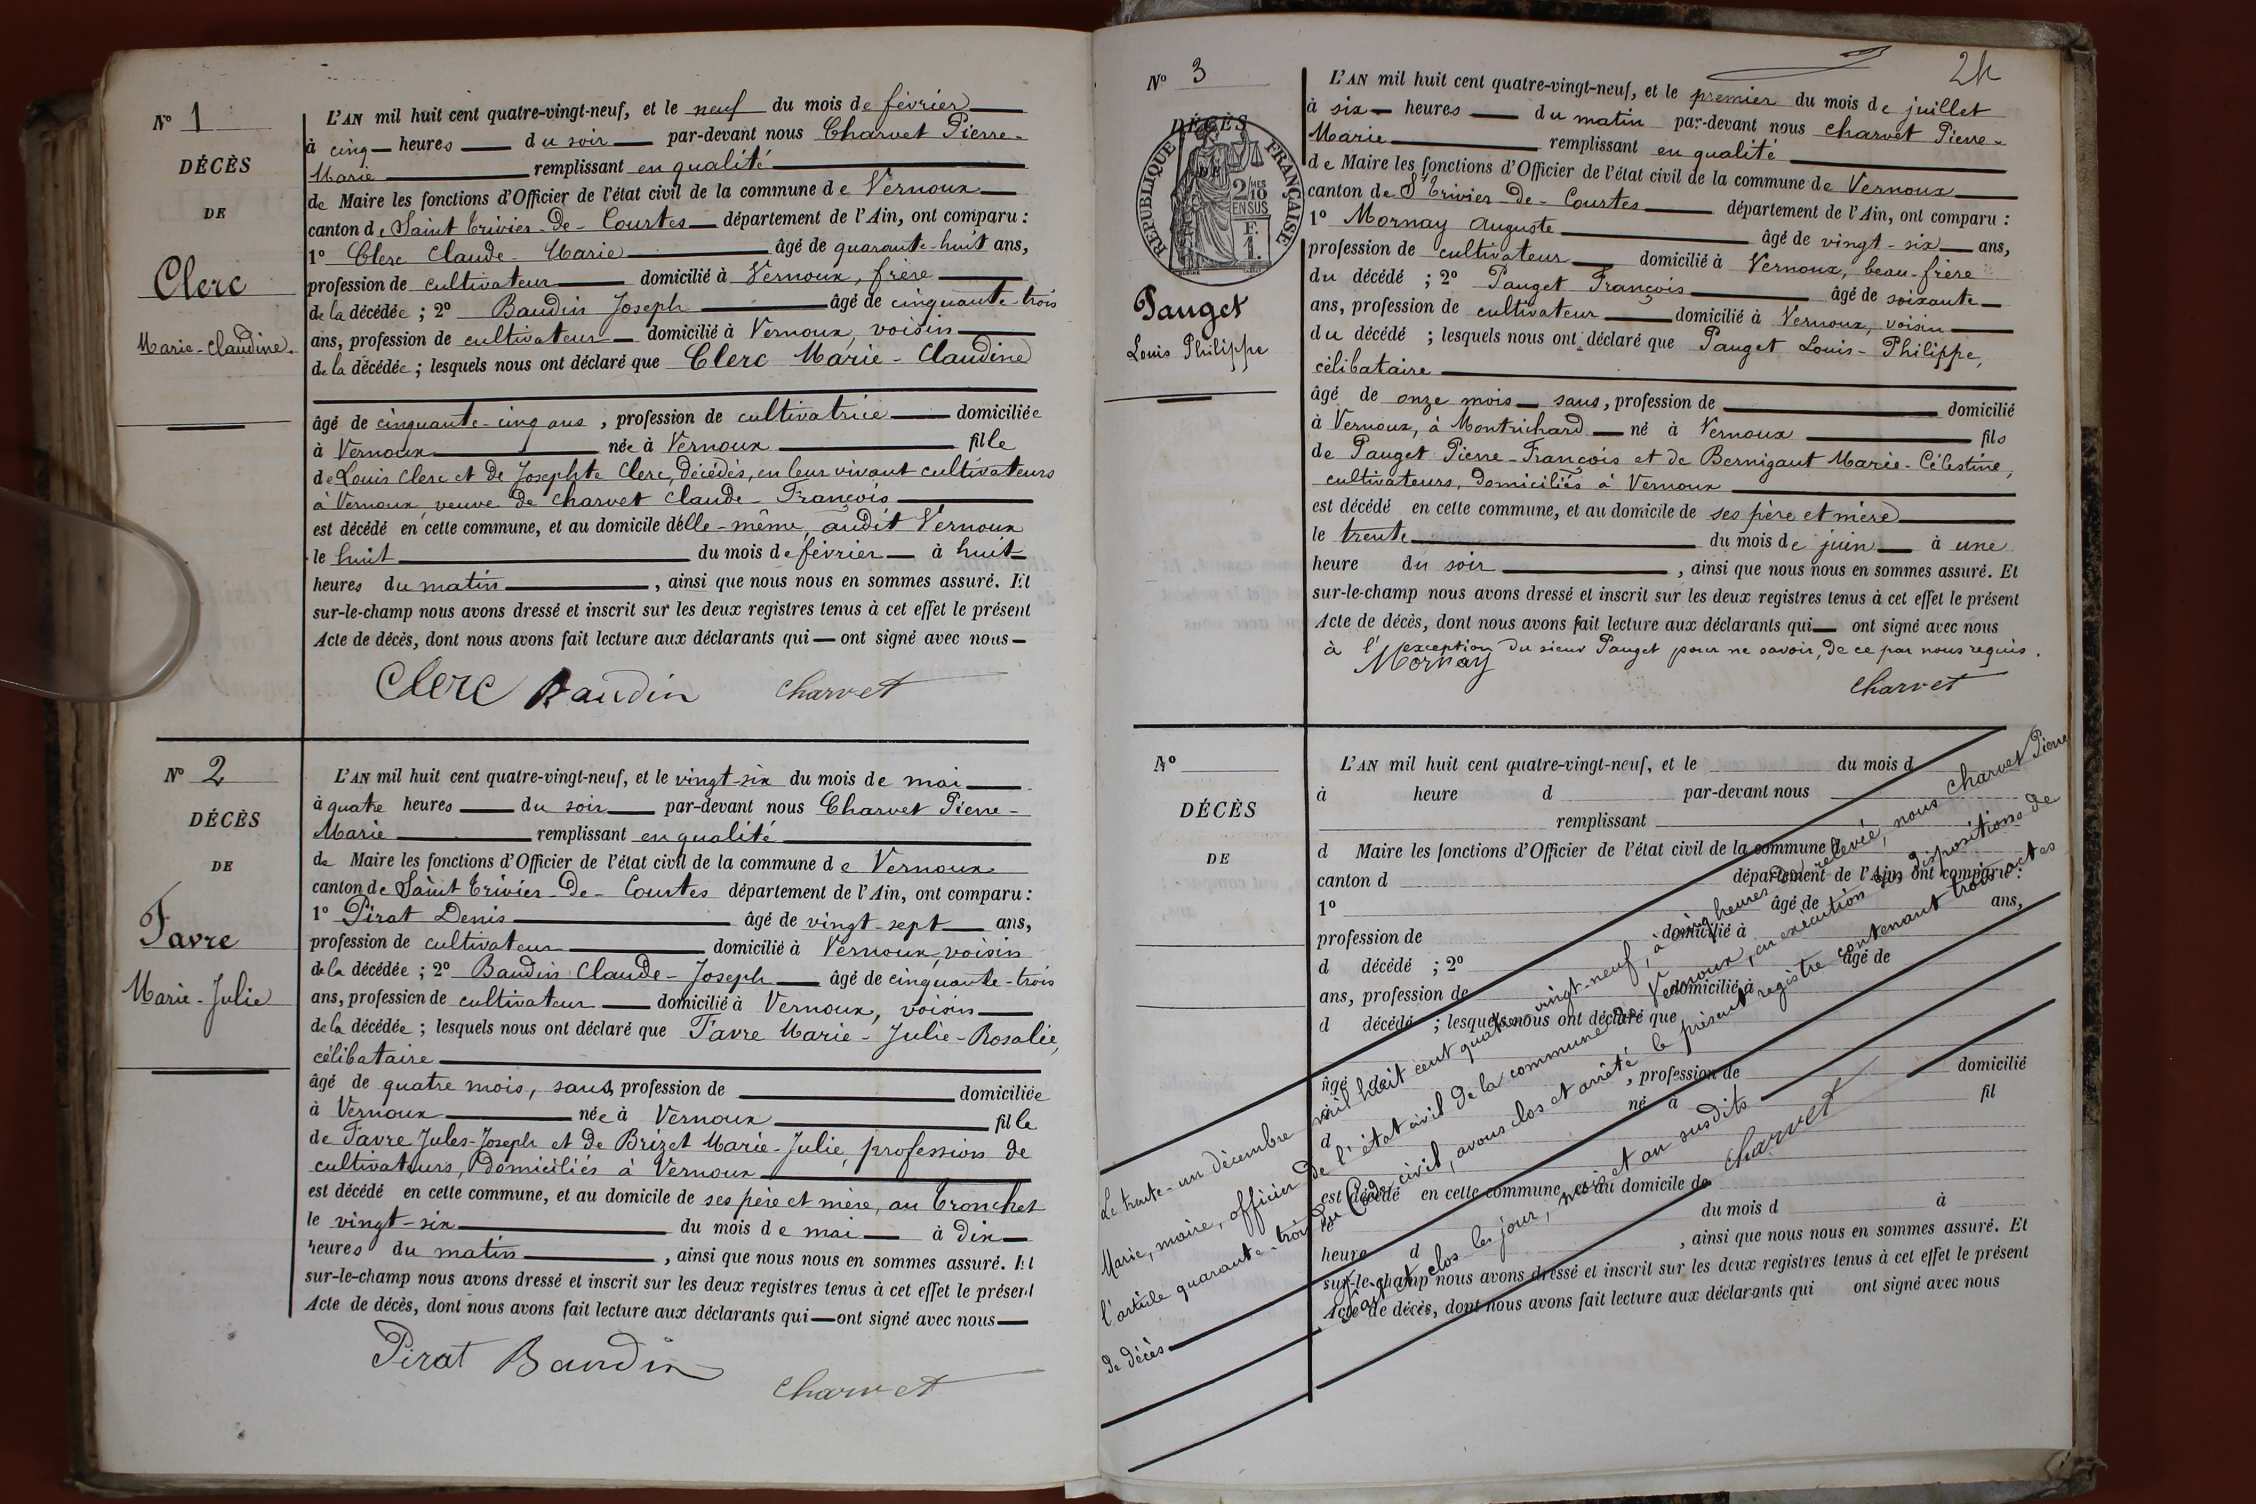 N° 1
DÉCÈS
DE
Clerc
Marie-Claudine.
L'AN mil huit cent quatre-vingt-neuf, et le neuf du mois de février
à cinq heures du soir par-devant nous Charvet Pierre-
Marie remplissant en qualité
de Maire les fonctions d'Officier de l'état civil de la commune de Vernoux
canton de Saint Trivier-De-Courtes département de l'Ain, ont comparu :
1° Clerc Claude-Marie âgé de quarante-huit ans,
profession de cultivateur domicilié à Vernoux, frère
de la décédée ; 2° Baudin Joseph âgé de cinquante-trois
ans, profession de cultivateur domicilié à Vernoux, voisin
de la décédée ; lesquels nous ont déclaré que Clerc Marie-Claudine
âgé de cinquante-cinq ans, profession de cultivatrice domiciliée
à Vernoux née à Vernoux fille
de Louis Clerc et de Josephte Clerc, décédés, en leur vivant cultivateurs
à Vernoux, veuve de Charvet Claude-François
est décédé en cette commune, et au domicile d'elle-même, audit Vernoux
le huit du mois de février à huit
heures du matin, ainsi que nous nous en sommes assuré. Et
sur-le-champ nous avons dressé et inscrit sur les deux registres tenus à cet effet le présent
Acte de décès, dont nous avons fait lecture aux déclarants qui ont signé avec nous
Clerc Baudin Charvet
N° 2
DÉCÈS
DE
Favre
Marie-Julie
L'AN mil huit cent quatre-vingt-neuf, et le vingt-six du mois de mai
à quatre heures du soir par-devant nous Charvet Pierre-
Marie remplissant en qualité
de Maire les fonctions d'Officier de l'état civil de la commune de Vernoux
canton de Saint Trivier-De-Courtes département de l'Ain, ont comparu :
1° Pirat Denis âgé de vingt-sept ans,
profession de cultivateur domicilié à Vernoux, voisin
de la décédée ; 2° Baudin Claude-Joseph âgé de cinquante-trois
ans, profession de cultivateur domicilié à Vernoux, voisin
de la décédée ; lesquels nous ont déclaré que Favre Marie-Julie-Rosalie,
célibataire
âgé de quatre mois, sans, profession de domiciliée
à Vernoux née à Vernoux fille
de Favre Jules-Joseph et de Brizet Marie-Julie, profession de
cultivateurs, domiciliés à Vernoux
est décédé en cette commune, et au domicile de ses père et mère, au Tronchet
le vingt-six du mois de mai à dix
heures du matin, ainsi que nous nous en sommes assuré. Et
sur-le-champ nous avons dressé et inscrit sur les deux registres tenus à cet effet le présent
Acte de décès, dont nous avons fait lecture aux déclarants qui ont signé avec nous
Pirat Baudin
Charvet
24
N° 3
DÉCÈS
DE
RÉPUBLIQUE FRANÇAISE
2/10 MES
EN SUS
F.
1.
Pauget
Louis Philippe
L'AN mil huit cent quatre-vingt-neuf, et le premier du mois de juillet
à six heures du matin par-devant nous Charvet Pierre-
Marie remplissant en qualité
de Maire les fonctions d'Officier de l'état civil de la commune de Vernoux
canton de St Trivier-De-Courtes département de l'Ain, ont comparu :
1° Mornay Auguste âgé de vingt-six ans,
profession de cultivateur domicilié à Vernoux, beau-frère
du décédé ; 2° Pauget François âgé de soixante
ans, profession de cultivateur domicilié à Vernoux, voisin
du décédé ; lesquels nous ont déclaré que Pauget Louis-Philippe,
célibataire
âgé de onze mois sans, profession de domicilié
à Vernoux, à Montrichard né à Vernoux fils
de Pauget Pierre-François et de Bernigaut Marie-Célestine,
cultivateurs, domiciliés à Vernoux
est décédé en cette commune, et au domicile de ses père et mère
le trente du mois de juin à une
heure du soir, ainsi que nous nous en sommes assuré. Et
sur-le-champ nous avons dressé et inscrit sur les deux registres tenus à cet effet le présent
Acte de décès, dont nous avons fait lecture aux déclarants qui ont signé avec nous
à l'exception du sieur Pauget pour ne savoir, de ce par nous requis.
Mornay
Charvet
N°
DÉCÈS
DE
L'AN mil huit cent quatre-vingt-neuf, et le du mois d
à heure d par-devant nous
remplissant
d Maire les fonctions d'Officier de l'état civil de la commune d
canton d département de l'Ain, ont comparu :
1° âgé de ans,
profession de domicilié à
d décédé ; 2° âgé de
ans, profession de domicilié à
d décédé ; lesquels nous ont déclaré que
âgé de, profession de domicilié
à né à fil
d
est décédé en cette commune, et au domicile de
le du mois d à
heure d, ainsi que nous nous en sommes assuré. Et
sur-le-champ nous avons dressé et inscrit sur les deux registres tenus à cet effet le présent
Acte de décès, dont nous avons fait lecture aux déclarants qui ont signé avec nous
Le trente-un décembre mil huit cent quatre-vingt-neuf, à cinq heures de relevée, nous Charvet Pierre
Marie, maire, officier de l'état civil de la commune de Vernoux, en exécution des dispositions de
l'article quarante-trois du Code civil, avons clos et arrêté le présent registre contenant trois actes
de décès
Fait et clos les jour, mois et an susdits
Charvet